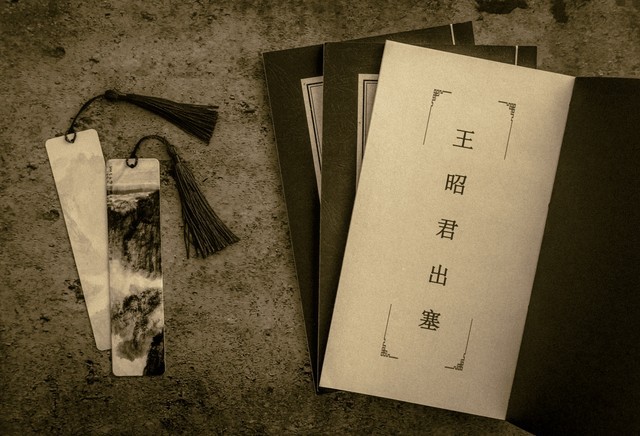 王昭君出塞